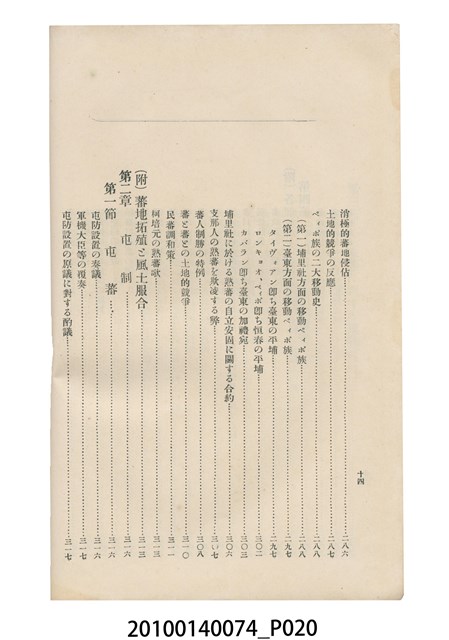 消極的蕃地侵佔……二八六
土地的競爭の反應……二八七
ペィポ族の二大移動史……二八八
(第一)埔里社方面の移動ペィポ族……二八八
(第二)臺東方面の移動ペィポ族……二九七
タイヴォアン卽ち臺東の平埔……二九七
ロンキョオ、ペィポ卽ち恒春の平埔……三〇二
カバラン卽ち臺東の加禮宛……三〇三
埔里社に於ける熟蕃の自立安固に關する合約……三〇六
支那人の熟蕃を欺凌する弊……三〇七
蕃人制勝の特例……三〇八
蕃と蕃との土地的競爭……三一〇
民蕃調和策……三一一
柯培元の熟蕃歌……三一三
(附)蕃地拓殖と風土服合……三一三
第二章 屯制……三一六
第一節 屯蕃……三一六
屯防設置の奏議……三一六
軍機大臣等の覆奏……三一七
屯防設置の原議に對する酌議……三一七
十四
20100140074_P020